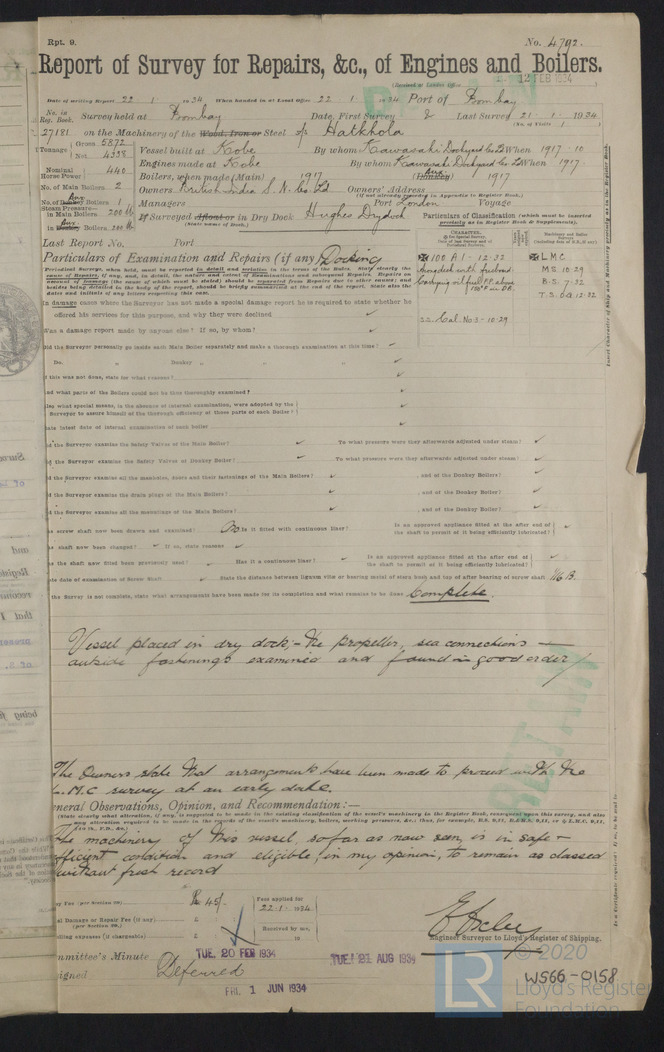 Rpt. 9.
No. 4792.
Report of Survey for Repairs, &c., of Engines and Boilers.
12 FEB 1934
Date of writing Report 22 . 1 . 1934 When handed in at Local Office 22 . 1 . 1934 Port of Bombay
No. in Reg. Book. Survey held at Bombay Date, First Survey & Last Survey 21 . 1 . 1934
27181 on the Machinery of the Wood, Iron or Steel Hatkhola
(No. of Visits 1)
Tonnage Gross 5872 Net 4338
Vessel built at Kobe By whom Kawasaki Dockyard Co Ld When 1917 . 10
Engines made at Kobe By whom Kawasaki Dockyard Co Ld When 1917
Nominal Horse Power 440
Boilers, when made (Main) 1917 (Donkey) 1917
No. of Main Boilers 2
Owners British India S. N. Co Ld Owners' Address
(If not already recorded in Appendix to Register Book.)
No. of Donkey Boilers 1
Managers Port London Voyage
Steam Pressure in Main Boilers 200 lb
If Surveyed Afloat or in Dry Dock Hughes Drydock
(State name of Dock.)
in Donkey Boilers 200 lb
Particulars of Classification (which must be inserted precisely as in Register Book & Supplements).
Last Report No. Port
Particulars of Examination and Repairs (if any) Docking
100 A1 - 12.32
LMC
MS 10.29
BS. 7.32
T.S. 12.32
Carrying oil fuel F.P. above 150°F in D.B.
SS. Cal. No3 - 10.29
In damage cases where the Surveyor has not made a special damage report he is required to state whether he
offered his services for this purpose, and why they were declined
Was a damage report made by anyone else? If so, by whom?
Did the Surveyor personally go inside each Main Boiler separately and make a thorough examination at this time?
Do. „ Donkey „ „ „
If this was not done, state for what reasons?
And what parts of the Boilers could not be thus thoroughly examined?
Also what special means, in the absence of internal examination, were adopted by the
Surveyor to assure himself of the thorough efficiency of those parts of each Boiler?
State latest date of internal examination of each boiler
Did the Surveyor examine the Safety Valves of the Main Boiler? To what pressure were they afterwards adjusted under steam?
Did the Surveyor examine the Safety Valves of Donkey Boiler? To what pressure were they afterwards adjusted under steam?
Did the Surveyor examine all the manholes, doors and their fastenings of the Main Boilers? and of the Donkey Boilers?
Did the Surveyor examine the drain plugs of the Main Boilers? and of the Donkey Boiler?
Did the Surveyor examine all the mountings of the Main Boilers? and of the Donkey Boiler?
Has screw shaft now been drawn and examined? No Is it fitted with continuous liner? Is an approved appliance fitted at the after end of the shaft to permit of it being efficiently lubricated?
Has shaft now been changed? If so, state reasons
Has the shaft fitted been previously used? Has it a continuous liner? Is an approved appliance fitted at the after end of the shaft to permit of it being efficiently lubricated?
State date of examination of Screw Shaft State the distance between lignum vitæ or bearing metal of stern bush and top of after bearing of screw shaft 1/16 B.
If the Survey is not complete, state what arrangements have been made for its completion and what remains to be done Complete.
Vessel placed in dry dock;- the propeller, sea connections -
outside fastenings examined and found in good order
The Owners state that arrangements have been made to proceed with the
L.M.C survey at an early date.
General Observations, Opinion, and Recommendation:—
The machinery of this vessel, so far as now seen, is in safe -
efficient condition and eligible, in my opinion, to remain as classed
without fresh record
Survey Fee (per Section 29) Rs 45/-
Fees applied for
22 . 1 . 1934
Special Damage or Repair Fee (if any)
(per Section 29.)
Received by me,
Travelling expenses (if chargeable)
19
Engineer Surveyor to Lloyd's Register of Shipping.
Committee's Minute TUE. 20 FEB 1934
TUE. 21 AUG 1934
Assigned Deferred
FRI. 1 JUN 1934
© 2020
W566-0158
LR
Lloyd's Register
Foundation